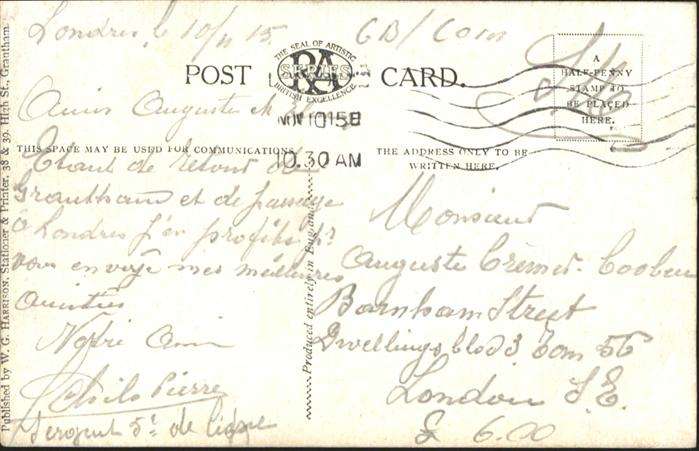 Londres le 10/11 15
GB/Com
POST CARD.
THE SEAL OF ARTISTIC
RA
SERIES
BRITISH EXCELLENCE
A
HALF-PENNY
STAMP TO
BE PLACED
HERE.
NOV 10 15 B
10.30 AM
Amis Auguste et
THIS SPACE MAY BE USED FOR COMMUNICATIONS.
THE ADDRESS ONLY TO BE
WRITTEN HERE.
Etant de retour de
Grantham et de passage
à Londres j'en profite pr
vous envoyé mes meilleures
amitiés
Votre Ami
Pierre
Sergent 5e de ligne
Monsieur
Auguste
Barnham Street
Dwellings bloc 3 56
London S.E.
£ 6.00
Produced entirely in England
Published by W. G. HARRISON, Stationer & Printer, 38 & 39, High St., Grantham.